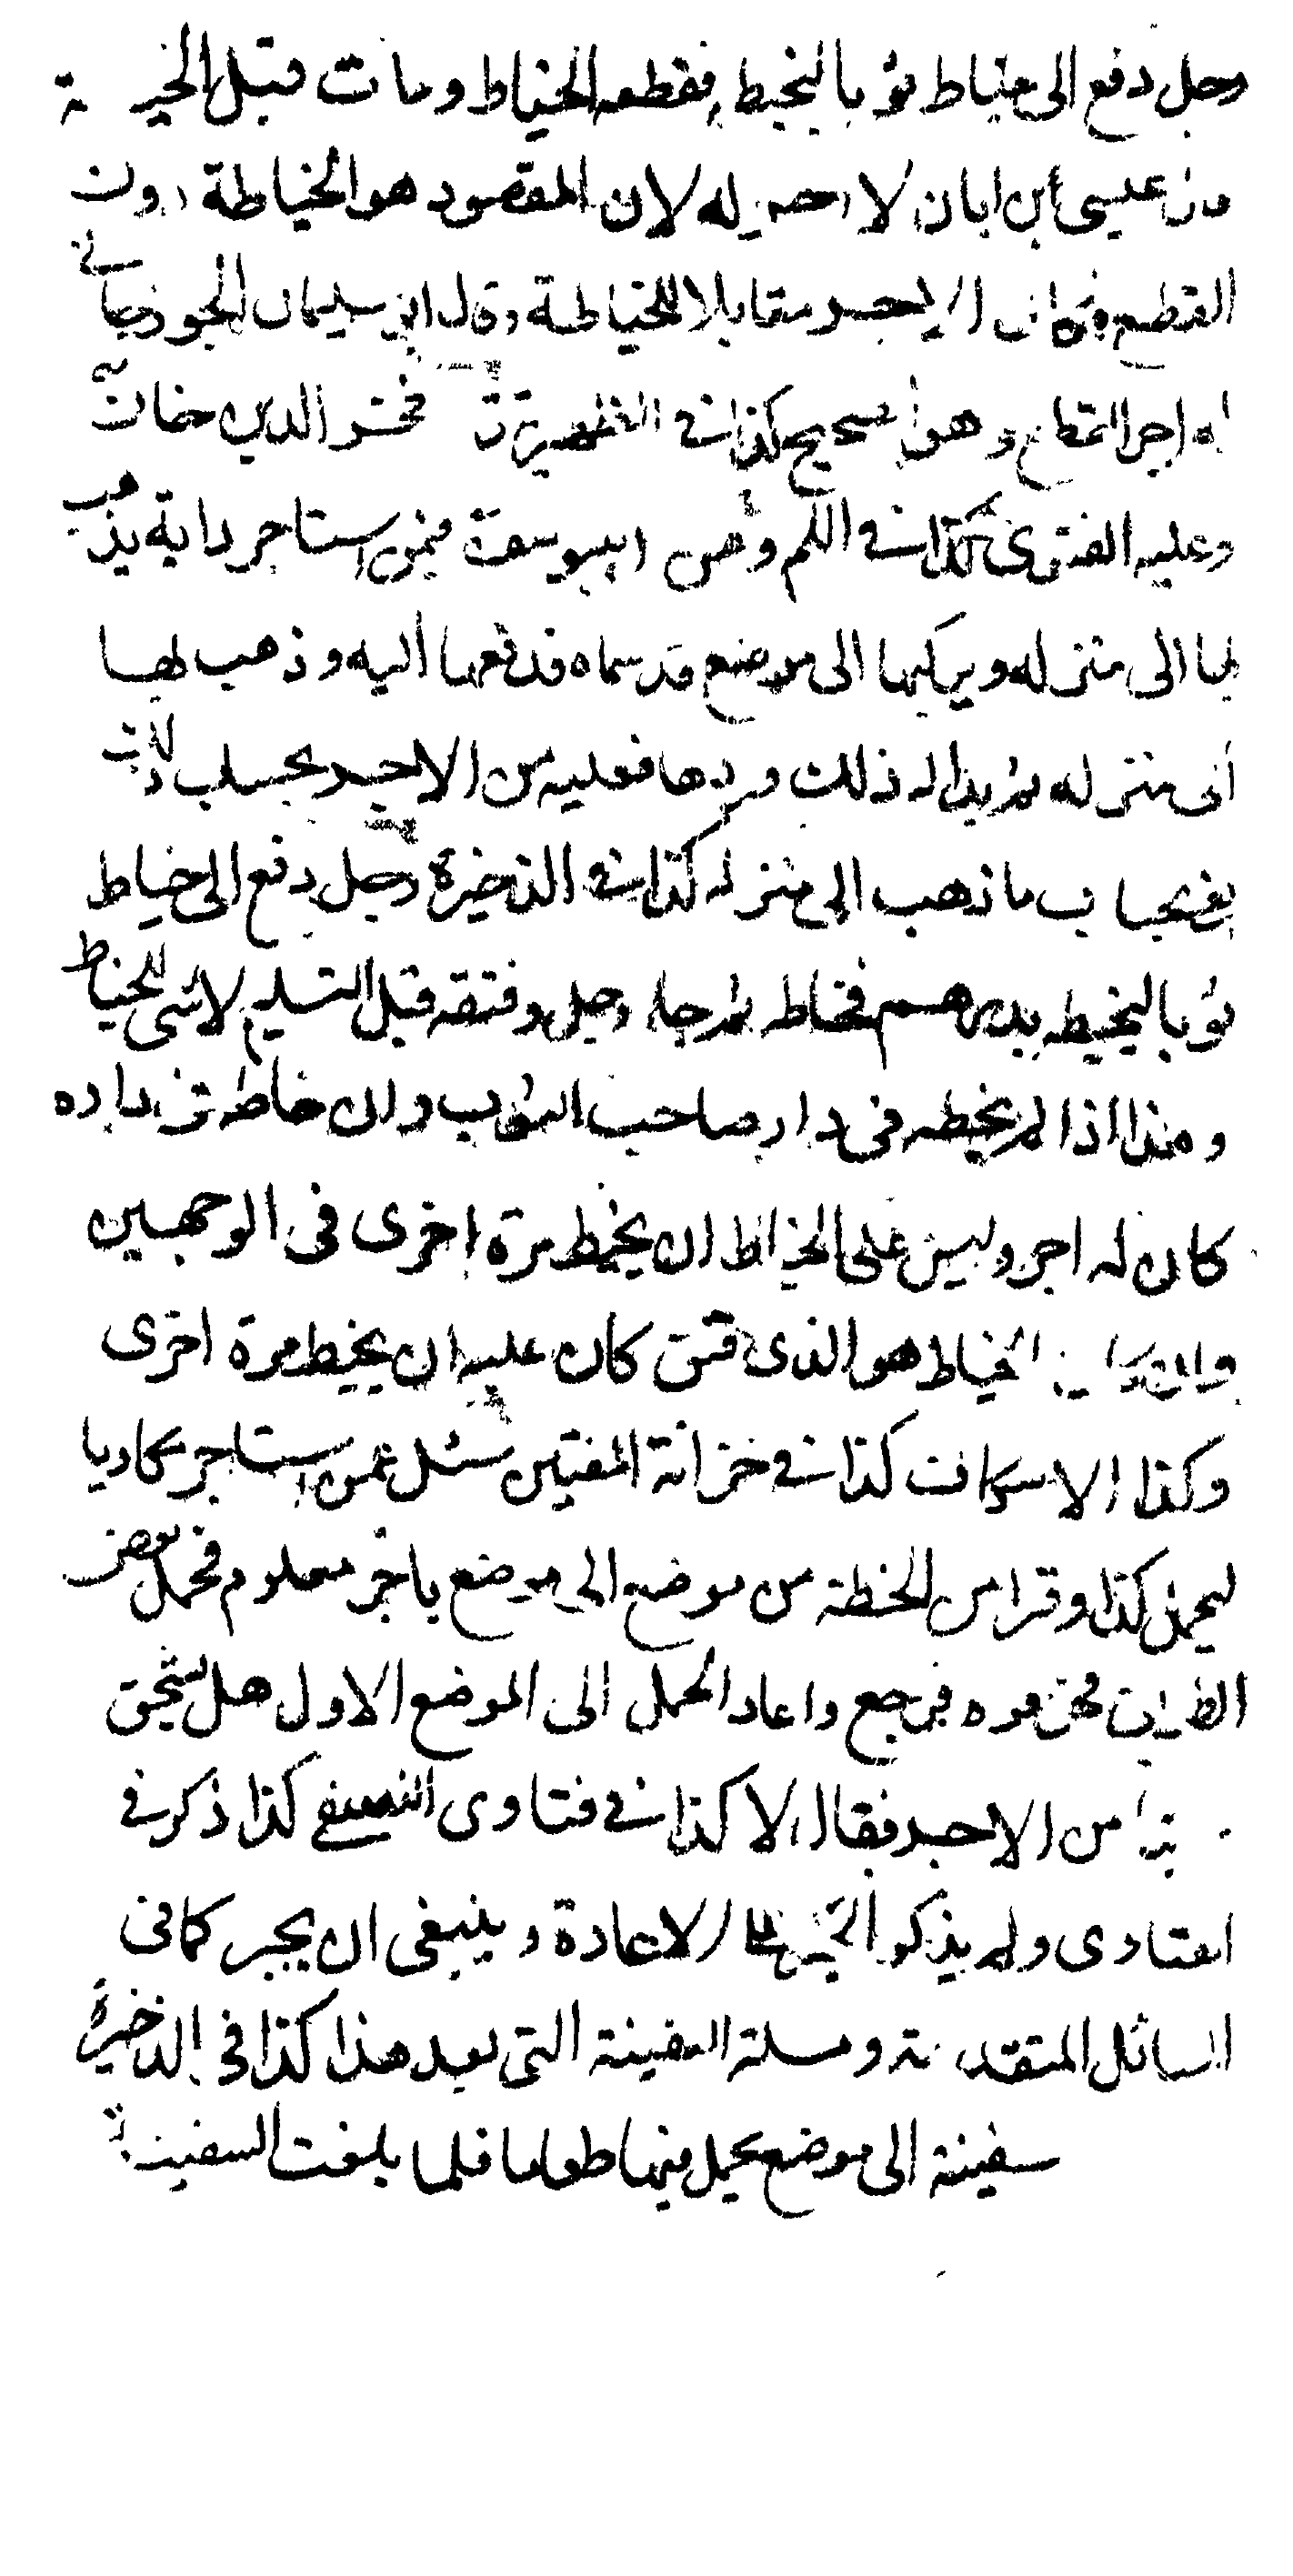 رجل دفع الى خياط ثوبا ليخيط فقطعه الخياط ومات قبل الخيا طة
عيسى ابن ابان لا اجر له لان المقصود هو الخياطة دون
القطع فكان الاجر مقابلا للخياطة وقال ابو سليمان الجوزجاني
له اجر القطع وهو الصحيح كذا في الظهيرية فخر الدين خان
وعليه الفتوى كذا في الكم وعن ابي يوسف فيمن استاجر دابة يذهب
بها الى منزله ويركبها الى موضع قد سماه فدفعها اليه وذهب بها
الى منزله ثم بدا له ذلك فردها فعليه من الاجر بحساب ذلك
ما ذهب الى منزله كذا في الذخيرة رجل دفع الى خياط
ثوبا ليخيطه بدرهم فخاطه ثم جاء رجل وفتقه قبل التسليم لا شي للخياط
وهذا اذا لم يخيطه في دار صاحب الثوب وان خاطه في داره
كان له اجر وليس على الخياط ان يخيط مرة اخرى في الوجهين
وان كان الخياط هو الذي فتق كان عليه ان يخيط مرة اخرى
وكذا الاسكاف كذا في خزانة المفتين سئل عمن استاجر مكاريا
ليحمل كذا وقرا من الحنطة من موضع الى موضع باجر معلوم فحمل بعض
الطريق فخوفوه فرجع واعاد الحمل الى الموضع الاول هل يستحق
من الاجر فقال لا كذا في فتاوى النسفي كذا ذكر في
الفتاوى ولم يذكر الجبر على الاعادة وينبغي ان يجبر كما في
المسائل المتقدمة ومسئلة السفينة التي بعد هذا كذا في الذخيرة
سفينة الى موضع يحمل فيها طعاما فلما بلغت السفينة